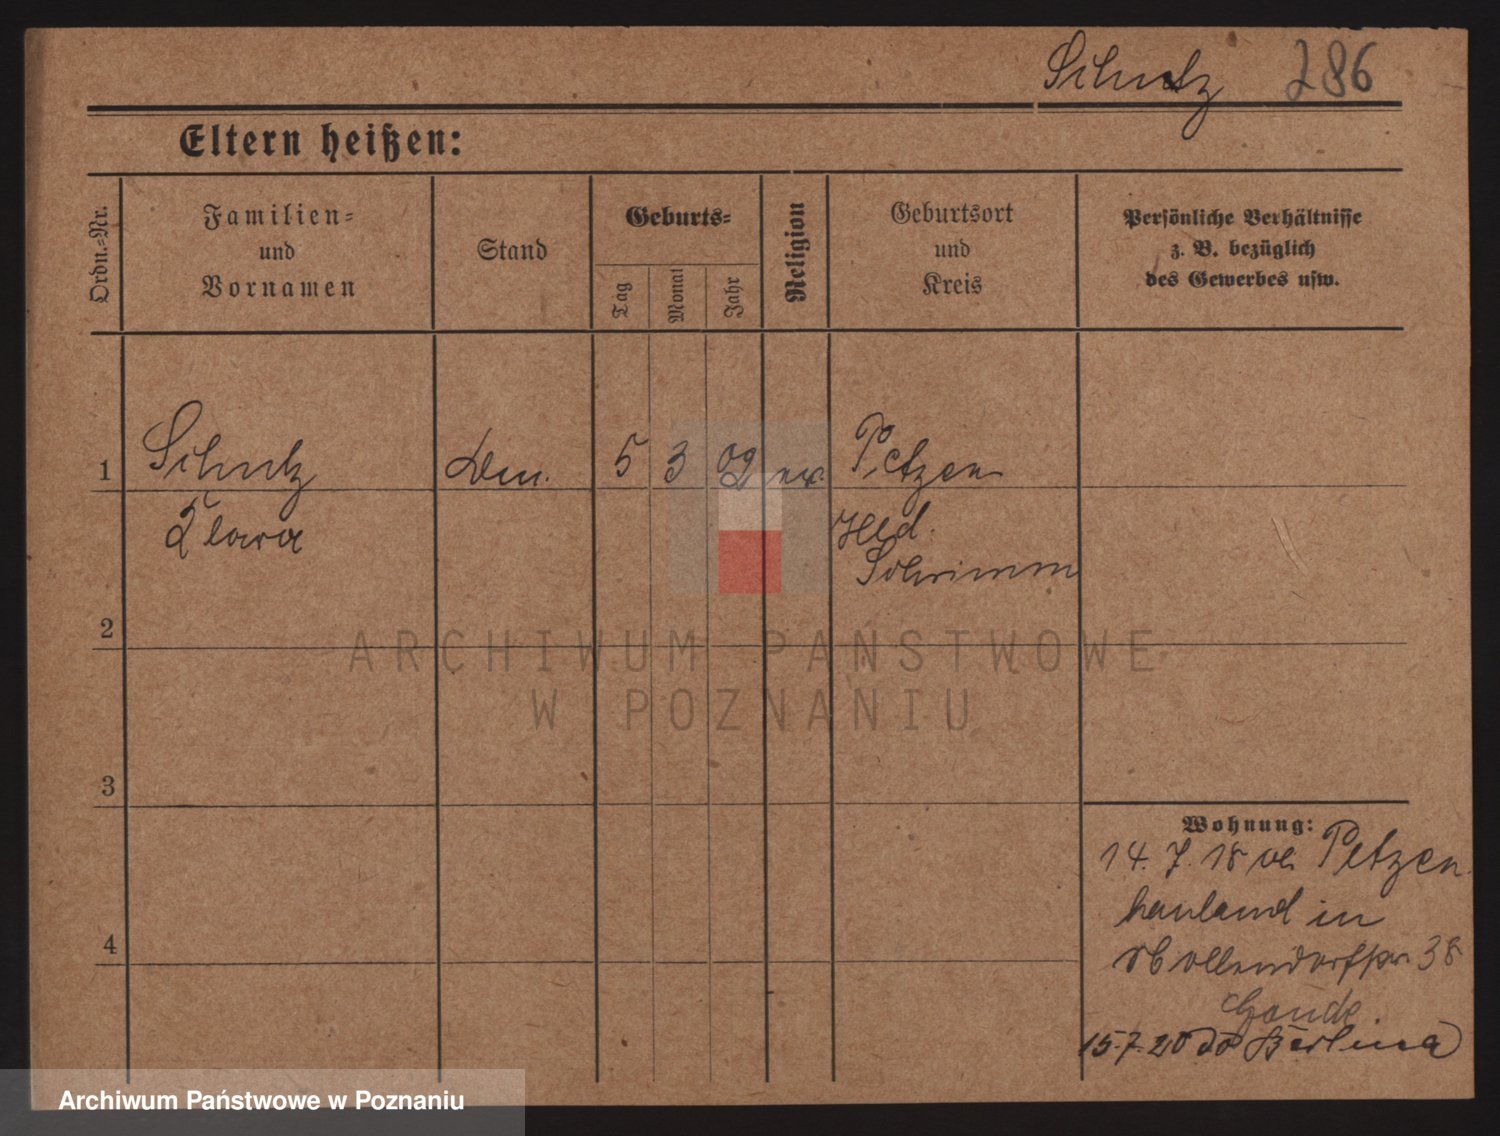 Schulz 286
Eltern heißen:
Ordn.=Nr.
Familien=
und
Vornamen
Stand
Geburts=
Tag
Monat
Jahr
Religion
Geburtsort
und
Kreis
Persönliche Verhältnisse
z. B. bezüglich
des Gewerbes usw.
1 Schulz 5 3 02 Petzen
Klara Hld.
Schrimm
2
ARCHIWUM PAŃSTWOWE
W POZNANIU
3
Wohnung:
14. 7. 18 Petzen
hauland in
38
4
Gande.
15.7.20 Berlin
Archiwum Państwowe w Poznaniu